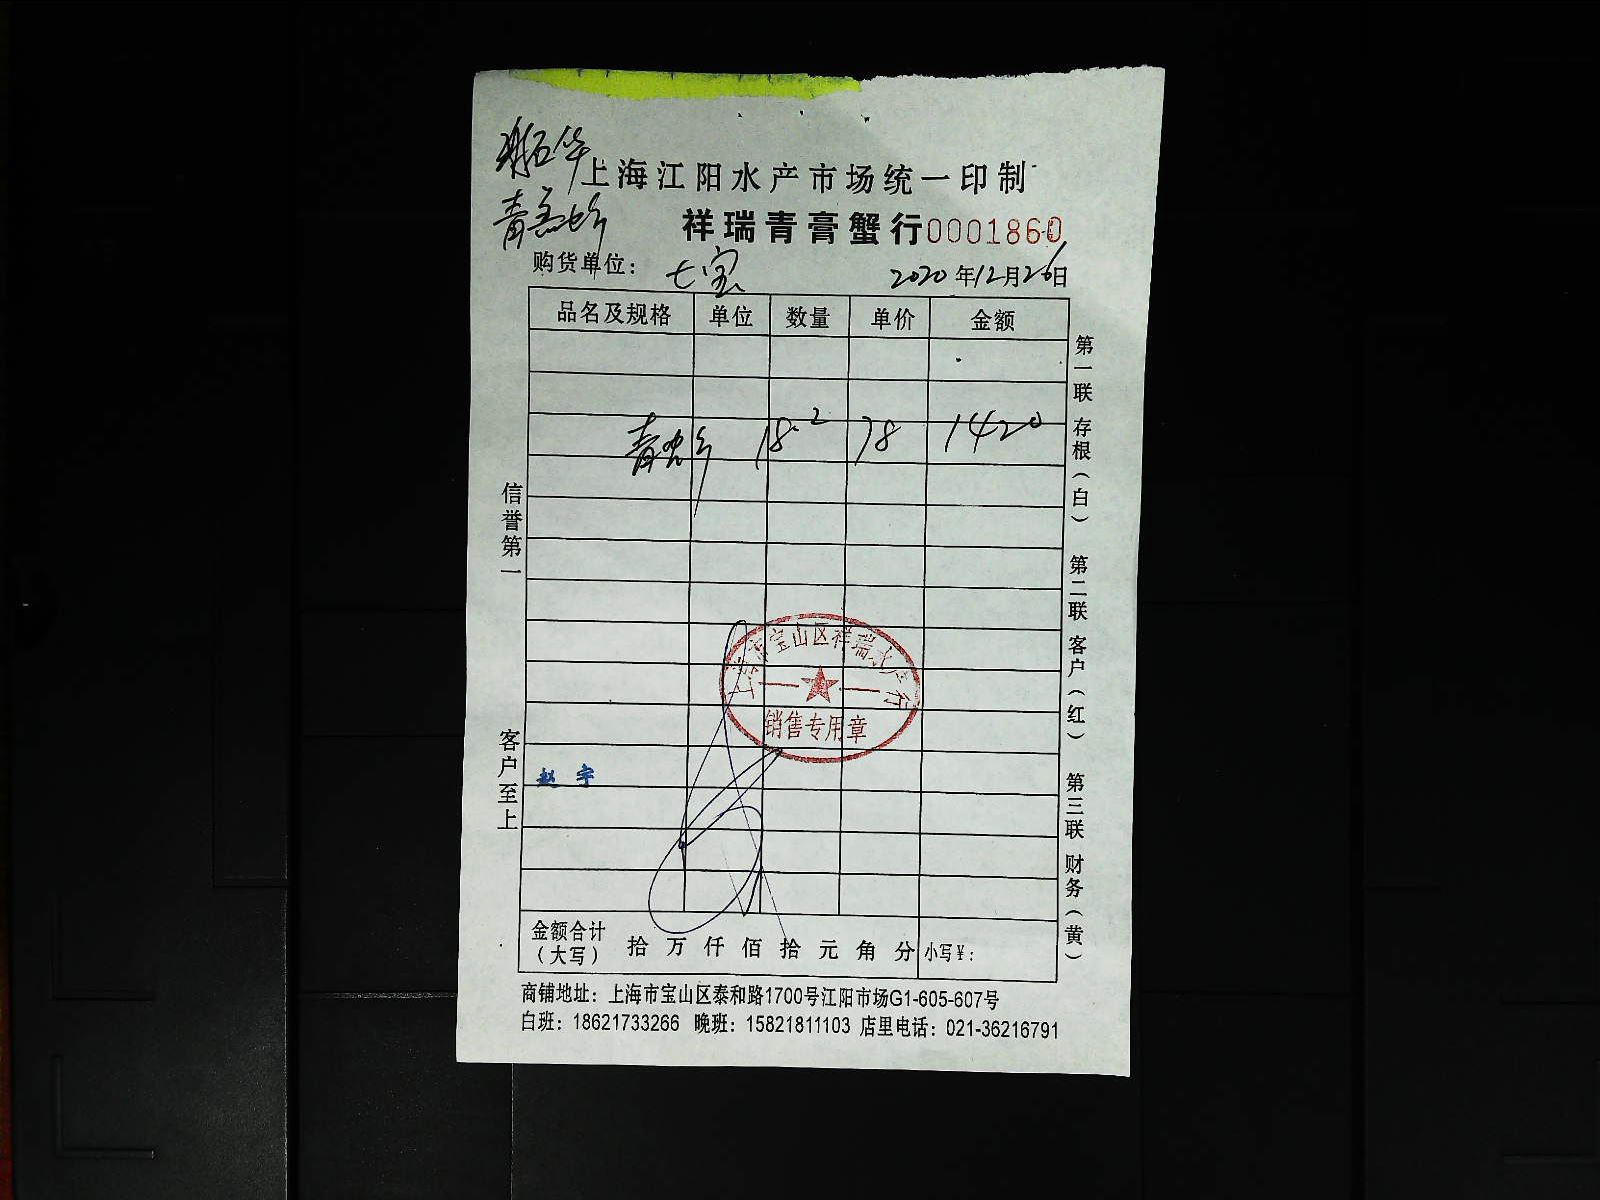 上海江阳水产市场统一印制
祥瑞青膏蟹行0001860
购货单位：七宝 2020年12月26日
品名及规格 单位 数量 单价 金额
青 18.2 78 1420
上海市宝山区祥瑞水产行
销售专用章
赵宇
金额合计（大写） 拾 万 仟 佰 拾 元 角 分 小写¥：
信誉第一
客户至上
第一联 存根（白） 第二联 客户（红） 第三联 财务（黄）
商铺地址：上海市宝山区泰和路1700号江阳市场G1-605-607号
白班：18621733266 晚班：15821811103 店里电话：021-36216791